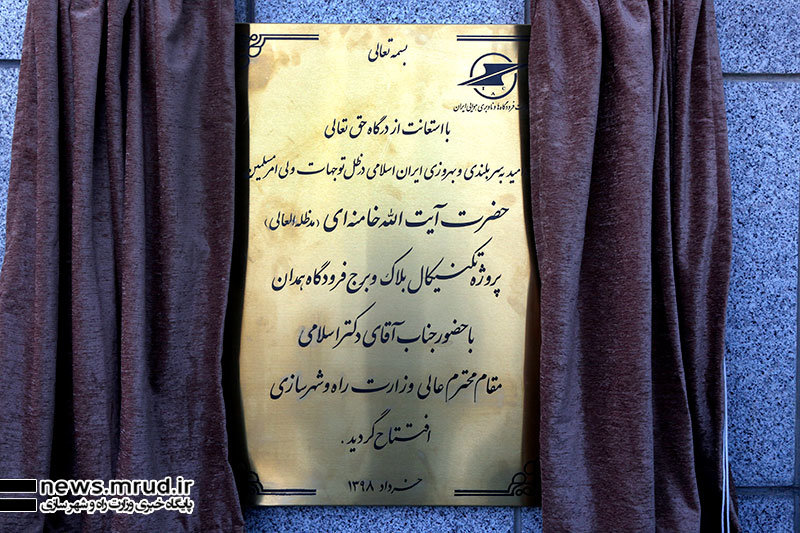 بسمه تعالی
IAC
فرودگاه‌ها و ناوبری هوایی ایران
با استعانت از درگاه حق تعالی
مید به سربلندی و بهروزی ایران اسلامی در ظل توجهات ولی امر مسلمین
حضرت آیت الله خامنه ای (مدظله العالی)
پروژه تکنیکال بلاک و برج فرودگاه همدان
با حضور جناب آقای دکتر اسلامی
مقام محترم عالی وزارت راه و شهرسازی
افتتاح گردید .
خرداد ۱۳۹۸
news.mrud.ir
پایگاه خبری وزارت راه و شهرسازی